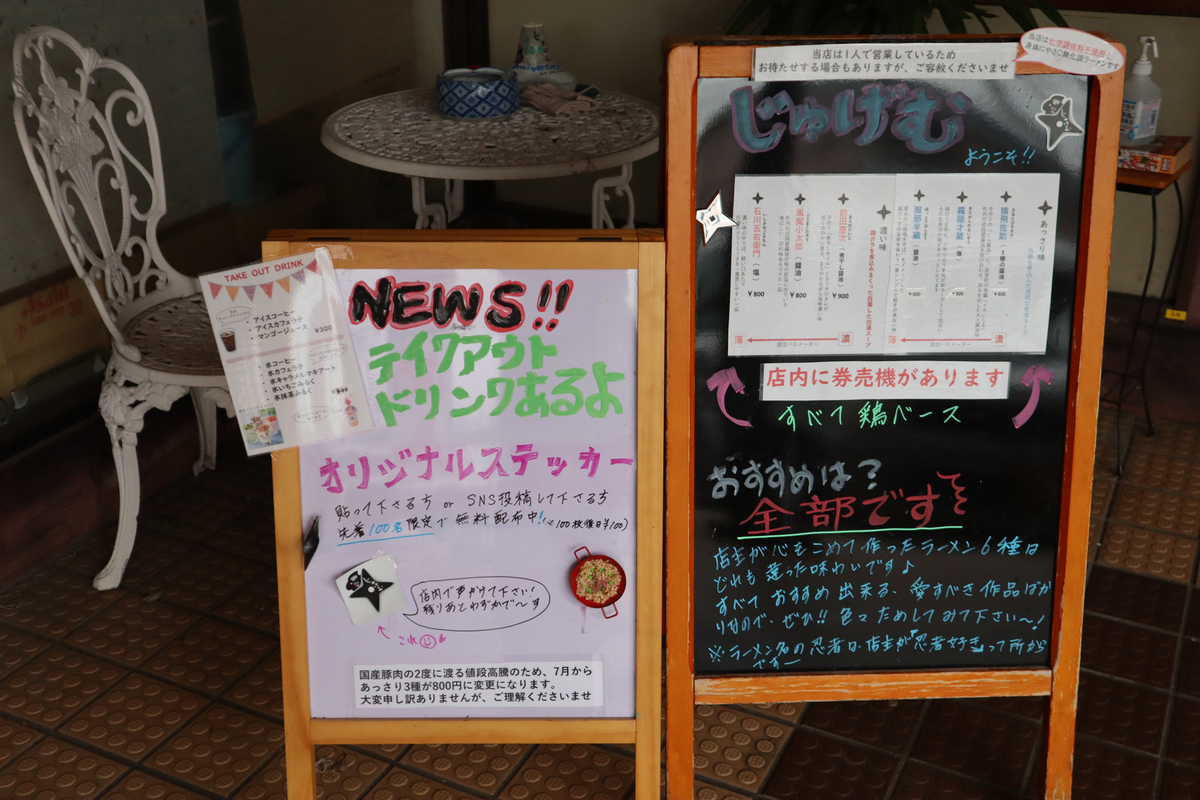 TAKE OUT DRINK
・アイスコーヒー
・アイスカフェラテ
・マンゴージュース
¥300
・氷コーヒー
・氷カフェラテ
・氷キャラメルマキアート
・氷いちごみるく
・氷抹茶みるく
NEWS!!
テイクアウト
ドリンクあるよ
オリジナルステッカー
貼って下さる方 or SNS投稿して下さる方
先着100名限定で無料配布中! ※100枚後日¥100)
店内で声かけて下さい!
残りあとわずかで〜す
これ
国産豚肉の2度に渡る値段高騰のため、7月から
あっさり3種が800円に変更になります。
大変申し訳ありませんが、ご理解くださいませ
当店は1人で営業しているため
お待たせする場合もありますが、ご容赦くださいませ
当店は化学調味料不使用!
身体にやさC無化調ラーメンです
じゅげむ
ようこそ!!
あっさり味
猿飛佐助
霧隠才蔵
(塩)
服部半蔵
(醤油)
濃い味
鶏ガラを煮込みまくった自慢した白湯スープ
前田慶次
(煮干し醤油)
¥900
風魔小太郎
(醤油)
¥800
石川五右衛門
(塩)
¥800
薄
濃
薄
濃
店内に券売機があります
すべて鶏ベース
おすすめは?
全部です
店主が心をこめて作ったラーメン6種は
どれも違った味わいです♪
すべておすすめ出来る、愛すべき作品ばか
りなので、ぜひ!!色々ためしてみて下さい〜!
※ラーメン名の忍者は、店主が忍者好きって所から
です